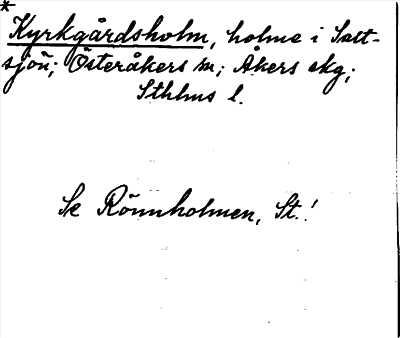 *
Kyrkgårdsholm, holme i Salt-
sjön; Österåkers sn; Åkers skg;
Sthlms l.
Se Rönnholmen, St.!